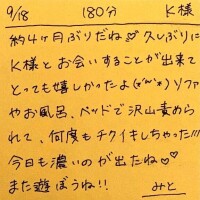 9/18 180分 K様
約4ヶ月ぶりだね♡久しぶりに
K様とお会いすることが出来て
とっても嬉しかったよ(*˘︶˘*)ソファ
やお風呂、ベッドで沢山責めら
れて、何度もチクイキしちゃった!!!
今日も濃いのが出たね♡♡
また遊ぼうね!!
みと